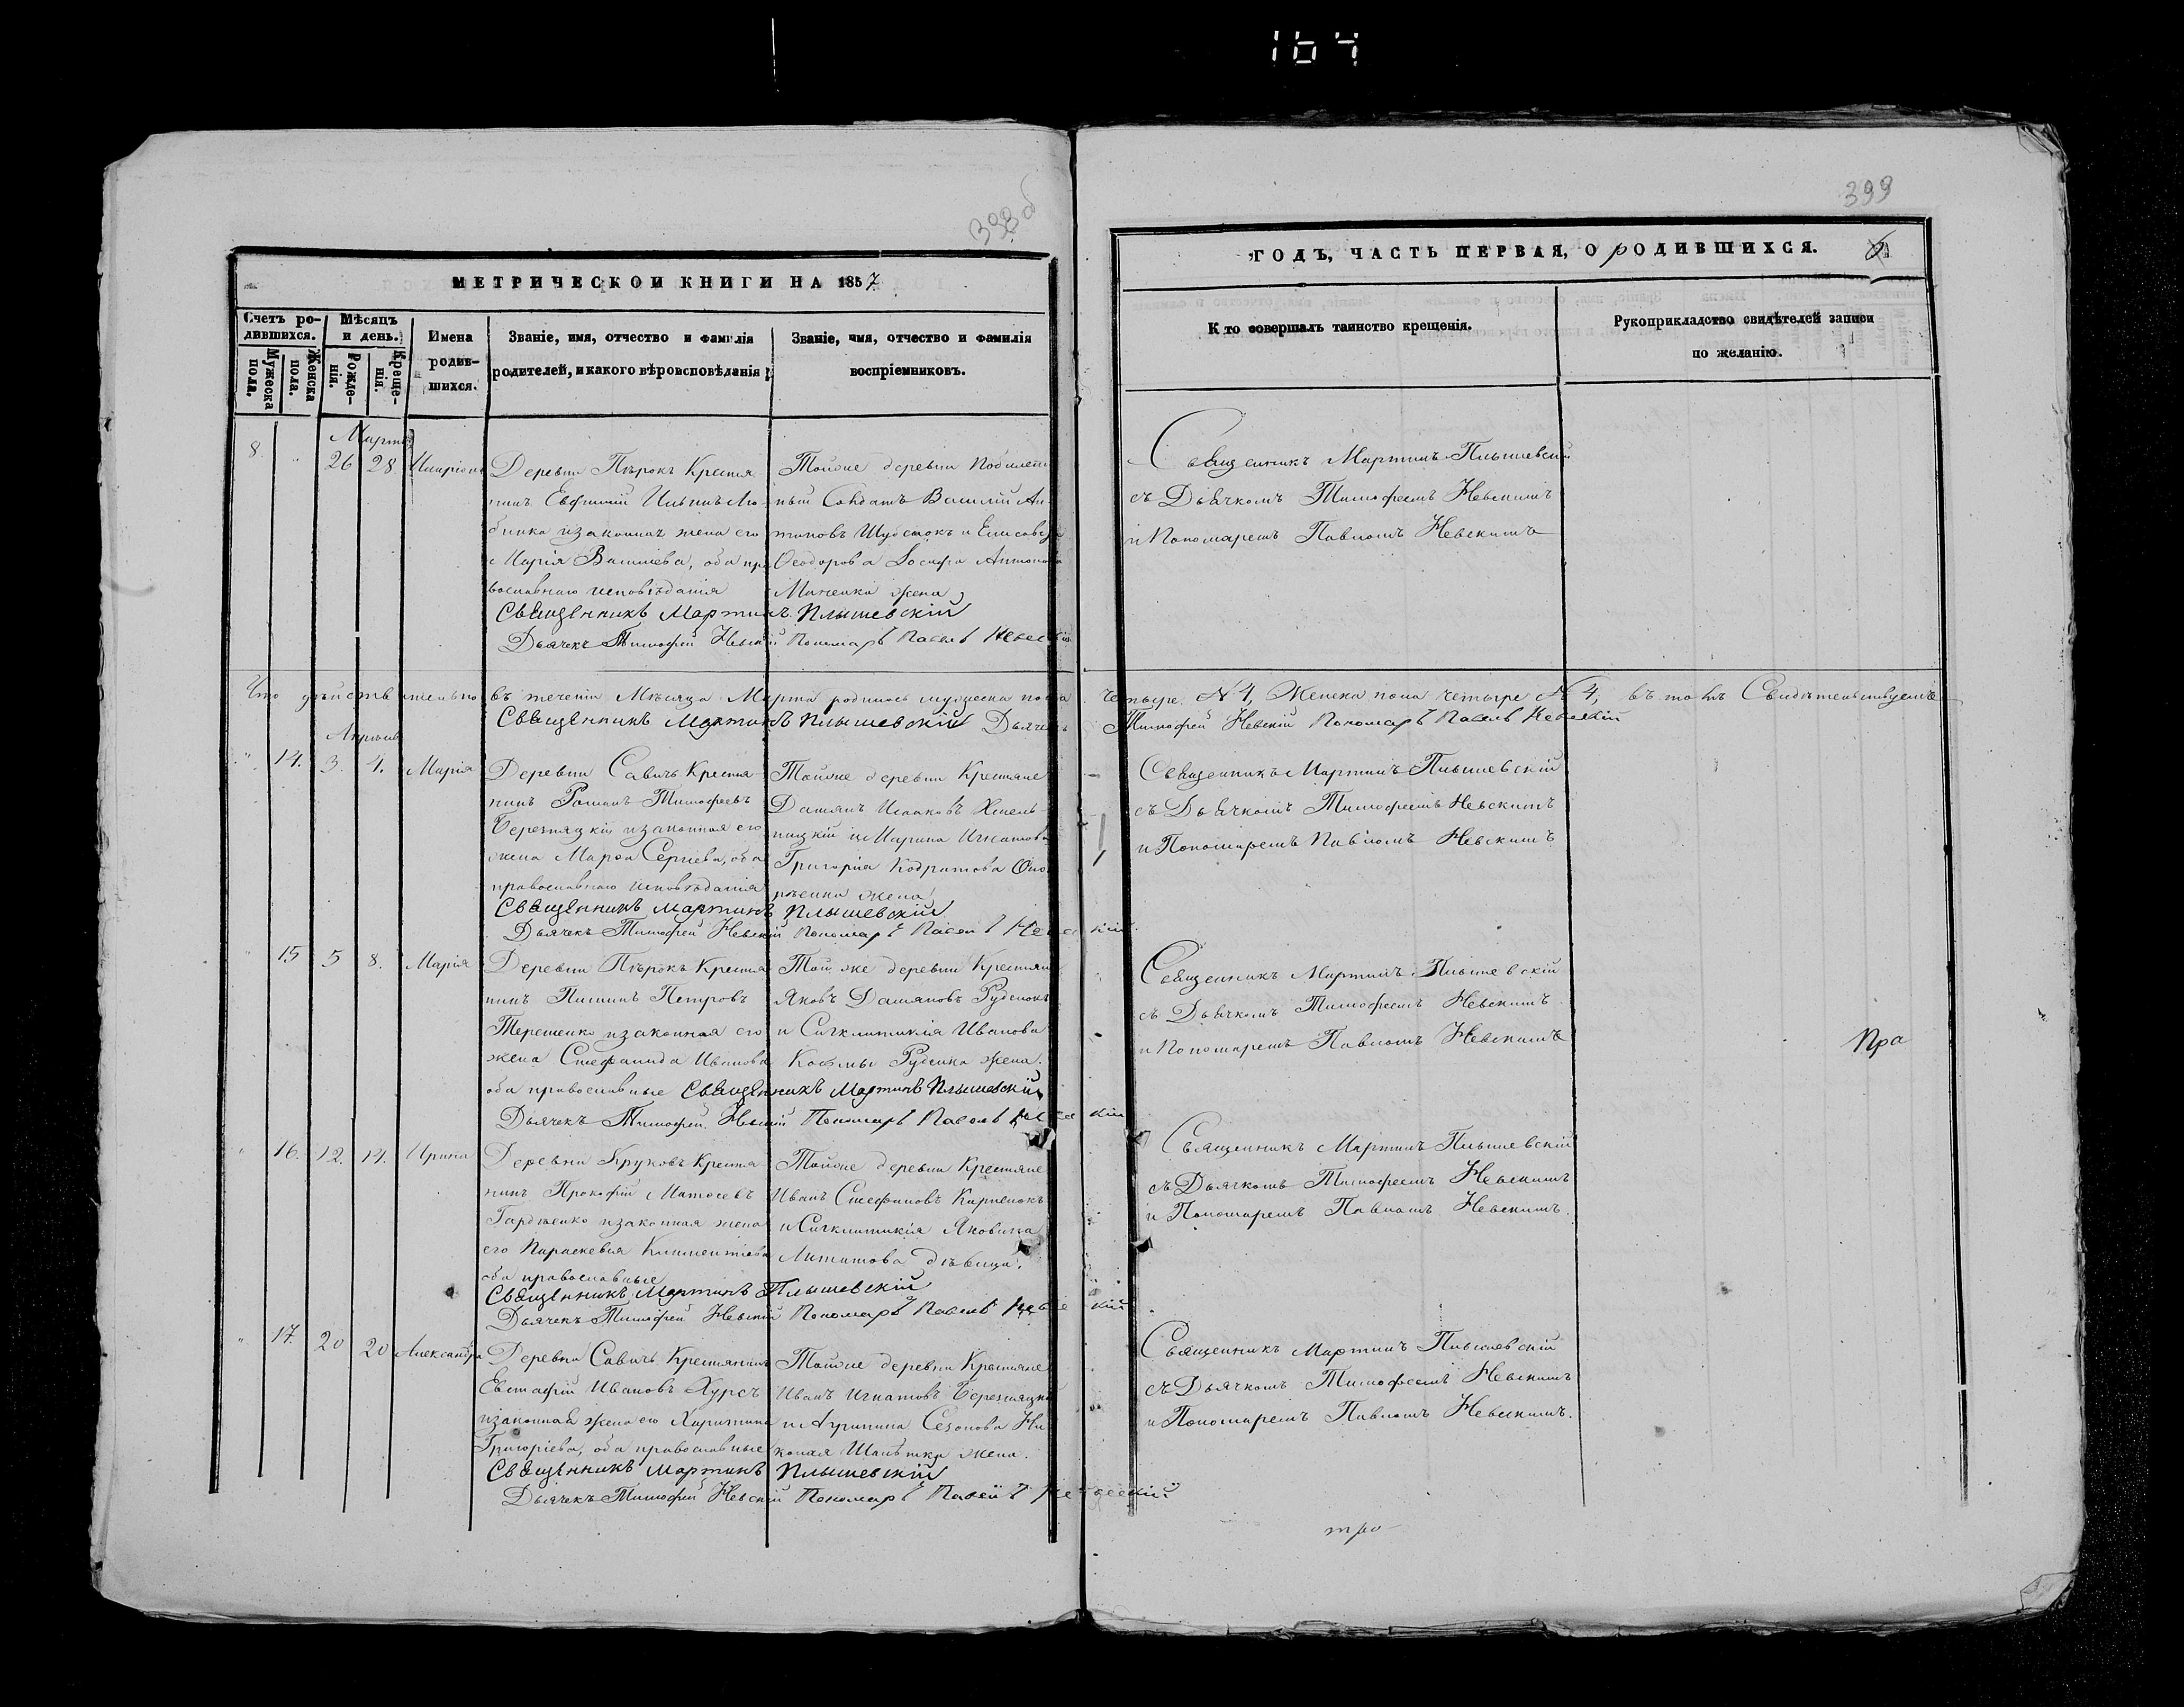 164
398об
399
МЕТРИЧЕСКОЙ КНИГИ НА 1857
ГОДЪ, ЧАСТЬ ПЕРВАЯ, О РОДИВШИХСЯ.
Счетъ родившихся.
Мужеска пола.
Женска пола.
Мѣсяцъ и день.
Рожденія.
Крещенія.
Имена родившихся.
Званіе, имя, отчество и фамилія
родителей, и какого вѣроисповѣданія
Званіе, имя, отчество и фамилія
воспріемниковъ.
Кто совершалъ таинство крещенія.
Рукоприкладство свидѣтелей записи
по желанію.
Мартъ
8. " 26 28 Иларіонъ
Деревни Пѣрокъ Крестья
нинъ Евфимій Ильинъ
изаконная жена его
Марія Васильева, оба пра
вославнаго исповѣданія
Тойже деревни
ный Солдатъ Василій Ан
тоновъ и Елисавета
Ѳеодорова Іосифа Антонова
жена
Священникъ Мартинъ Плышевскій
Дьячекъ Тимофей Невскій Пономарь Павелъ Невскій
Священникъ Мартинъ Плышевскій
съ Дьячкомъ Тимофеемъ Невскимъ
и Пономаремъ Павломъ Невскимъ
Что дѣйствительно въ теченіи Мѣсяца Марта родилось мужеска пола четыре № 4, Женска пола четыре № 4, въ томъ Свидѣтельствуемъ
Священникъ Мартинъ Плышевскій Дьячекъ Тимофей Невскій Пономарь Павелъ Невскій
Апрѣль
" 14. 3. 4. Марія
Деревни Савичъ Крестья
нинъ Романъ Тимофеевъ
Березняцкій изаконная его
жена Марѳа Сергиева, оба
православнаго исповѣданія
Тойже деревни Крестьяне
Даміанъ Исааковъ Хмель
ницкій и Марина Игнатова
Григорія Кодратова
жена
Священникъ Мартинъ Плышевскій
Дьячекъ Тимофей Невскій Пономарь Павелъ Невскій.
Священникъ Мартинъ Плышевскій
съ Дьячкомъ Тимофеемъ Невскимъ
и Пономаремъ Павломъ Невскимъ
" 15 5 8. Марія
Деревни Пѣрокъ Крестья
нинъ Пиминъ Петровъ
Терешенко изаконная его
жена Стефанида Иванова
оба православные
Той же деревни Крестьяне
Яковъ Даміановъ Руденокъ
и Сигклитикія Иванова
Косьмы Руденка жена.
Священникъ Мартинъ Плышевскій
Дьячекъ Тимофей Невскій Пономарь Павелъ Невскій
Священникъ Мартинъ Плышевскій
съ Дьячкомъ Тимофеемъ Невскимъ
и Пономаремъ Павломъ Невскимъ
Пра
" 16. 12. 14. Ирина
Деревни Круковъ Крестья
нинъ Прокофій Матѳеевъ
Гордѣенко изаконная жена
его Параскевія Климентіева
оба православные
Тойже деревни Крестьяне
Иванъ Стефановъ Карпенокъ
и Сигклитикія Яковина
дѣвица.
Священникъ Мартинъ Плышевскій
Дьячекъ Тимофей Невскій Пономарь Павелъ Невскій
Священникъ Мартинъ Плышевскій
съ Дьячкомъ Тимофеемъ Невскимъ
и Пономаремъ Павломъ Невскимъ.
" 17. 20 20 Александра
Деревни Савичъ Крестьянинъ
Евстафій Ивановъ Хурсъ
изаконная жена его Харитина
Григоріева, оба православные
Тойже деревни Крестьяне
Иванъ Игнатовъ Березняцкій
и Агрипина Сезонова Ни
колая жена.
Священникъ Мартинъ Плышевскій
Дьячекъ Тимофей Невскій Пономарь Павелъ Невскій.
Священникъ Мартинъ Плышевскій
съ Дьячкомъ Тимофеемъ Невскимъ
и Пономаремъ Павломъ Невскимъ.